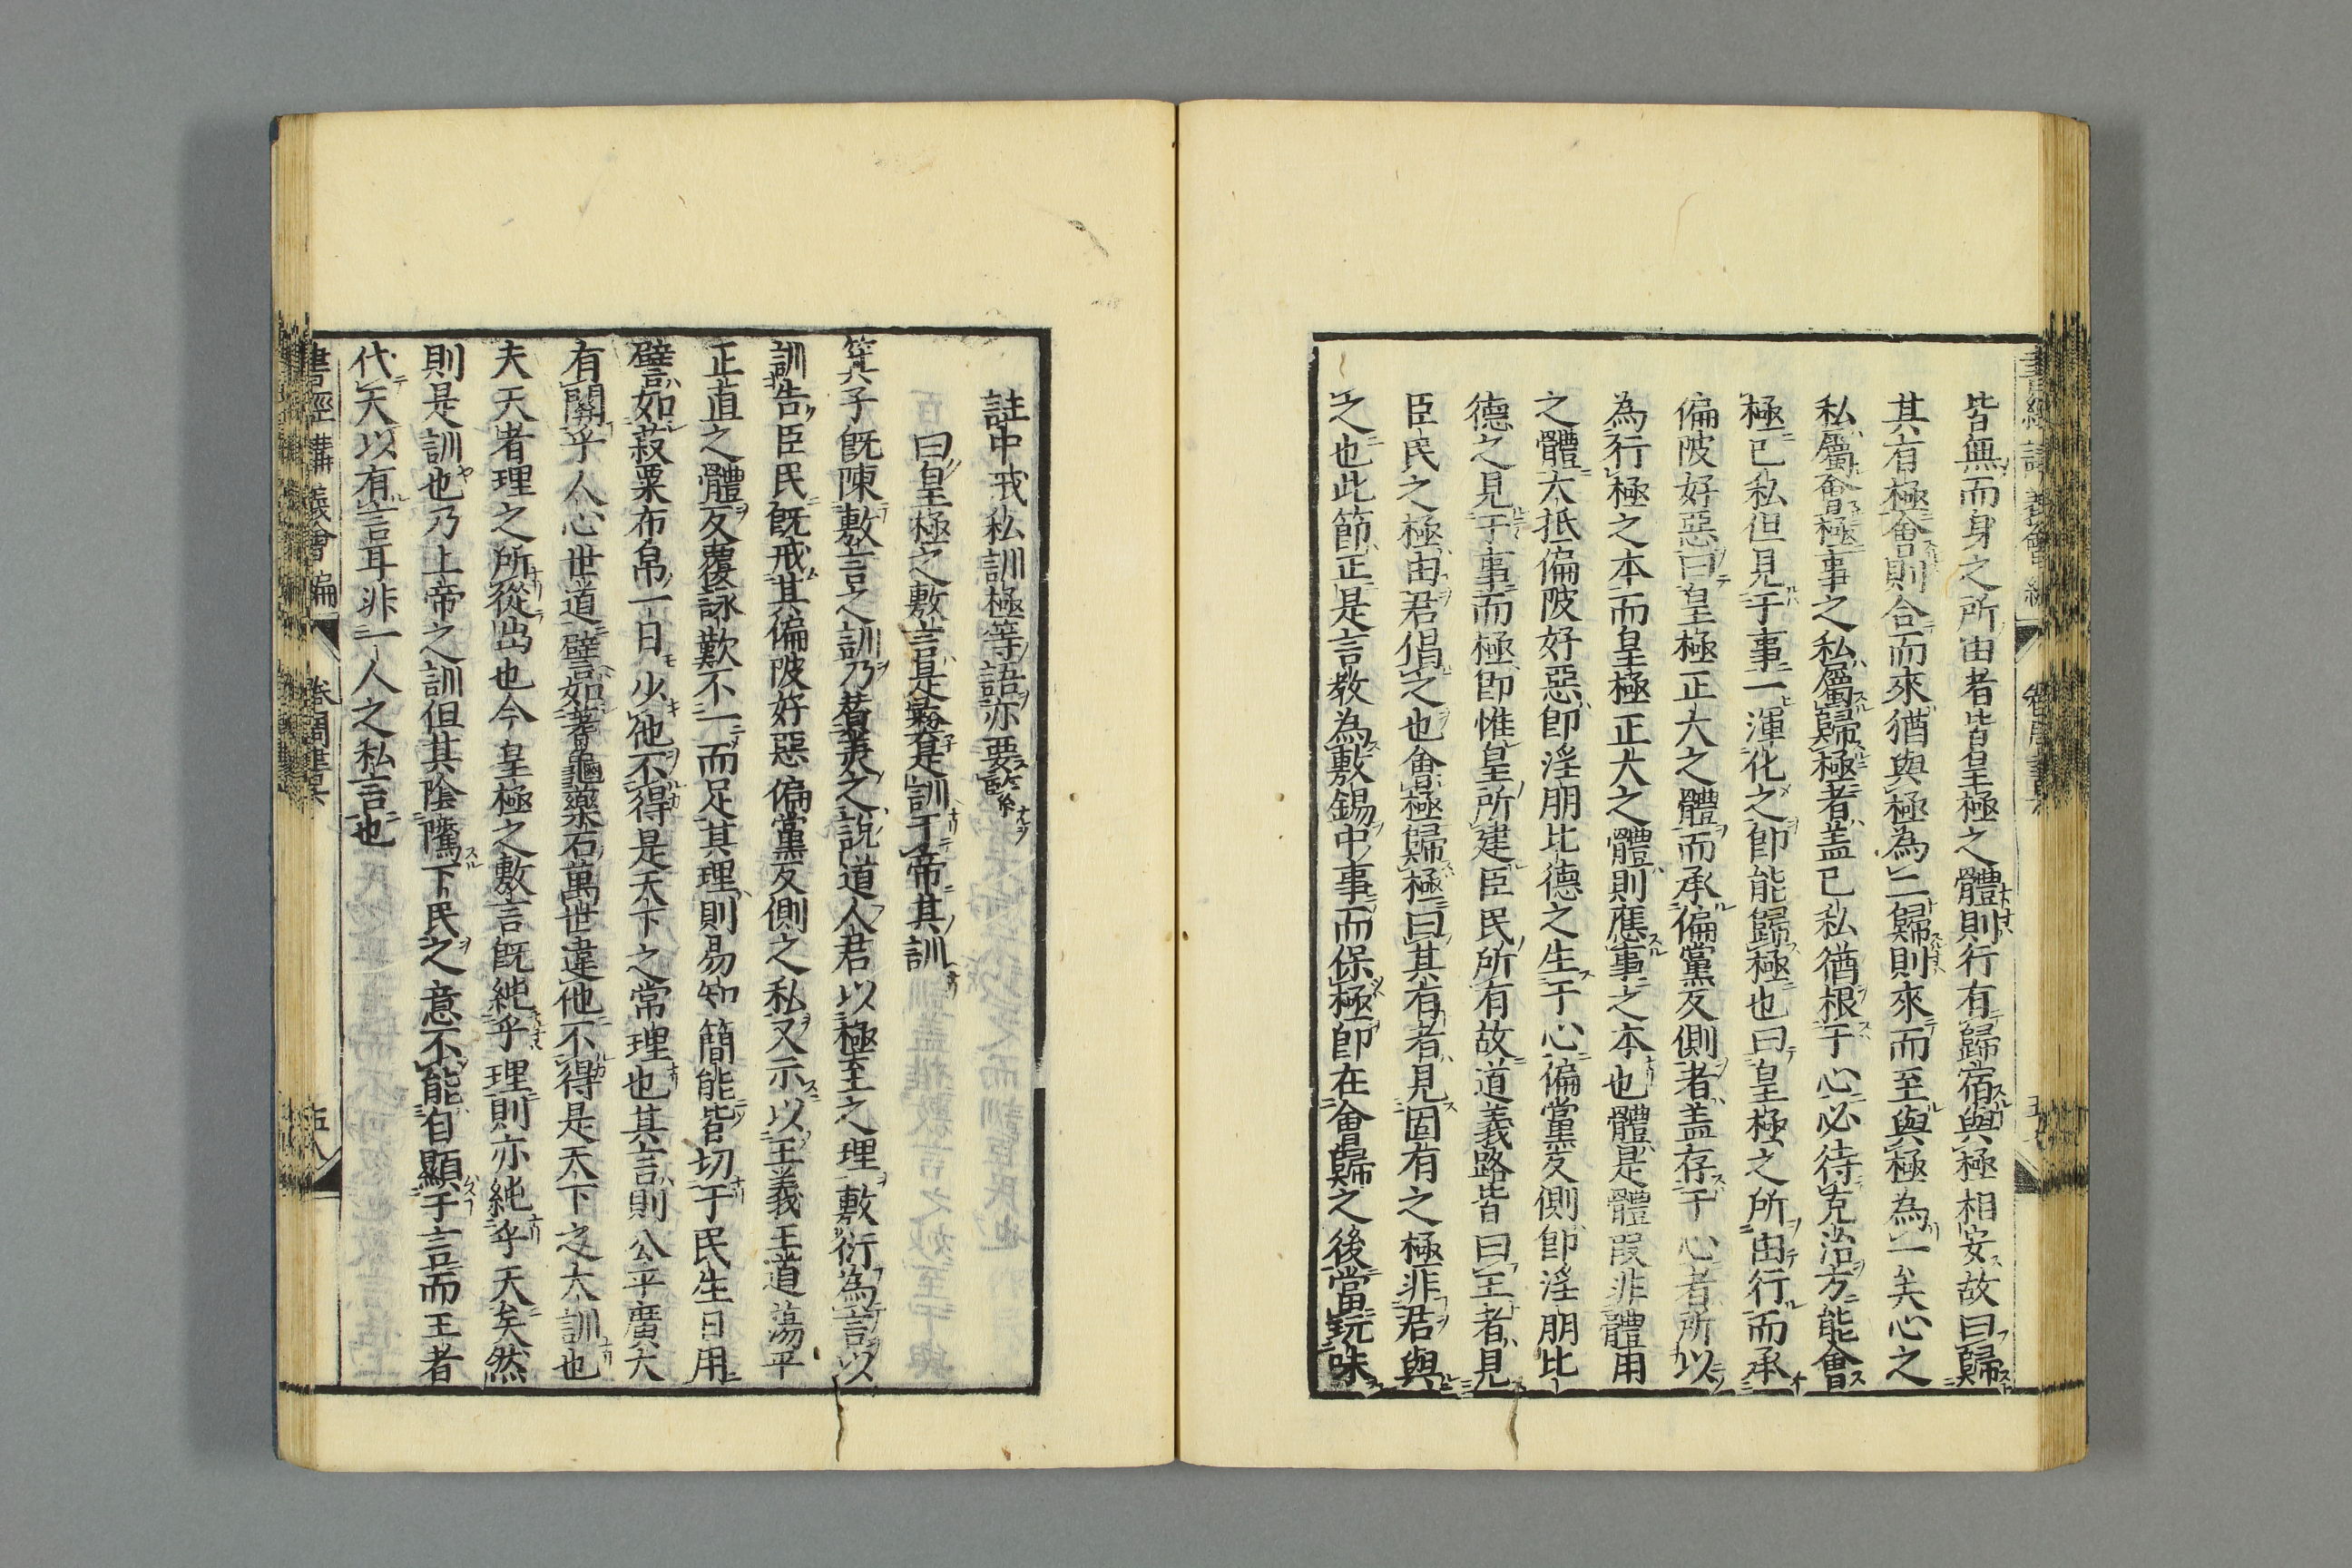 皆無而身之所由者皆皇極之體則行有歸宿與極相安故曰歸
其有極會則合而來猶與極為二歸則來而至與極為一矣心之
私屬會極事之私屬歸極者盖已私猶根于心必待克治方能會
極已私但見于事一渾化之即能歸極也曰皇極之所由行而承
偏陂好惡曰皇極正大之體而承偏黨反側者盖存于心者所以
為行極之本而皇極正大之體則應事之本也體是體叚非體用
之體大抵偏陂好惡即淫朋比德之生于心偏黨反側即淫朋比
德之見于事而極即惟皇所建臣民所有故道義路皆曰王者見
臣民之極由君倡之也會極歸極曰其有者見固有之極非君與
之也此節正是言教為敷錫中事而保極即在會歸之後當玩味
註中戒私訓極等語亦要
曰皇極之敷言是彞是訓于帝其訓
箕子旣陳敷言之訓乃賛之說道人君以極至之理敷衍為言以
訓告臣民旣戒其偏陂好惡偏黨反側之私又示以王義王道蕩平
正直之體反覆詠歎不一而足其理則易知簡能皆切于民生日用
譬如菽粟布帛一日少他不得是天下之常理也其言則公平廣大
有關乎人心世道譬如蓍龜藥石萬世違他不得是天下之大訓也
夫天者理之所從出也今皇極之敷言旣純乎理則亦純乎天矣然
則是訓也乃上帝之訓但其陰騭下民之意不能自顯于言而王者
代天以有言耳非一人之私言也
書經講義會編　卷　周書　五八